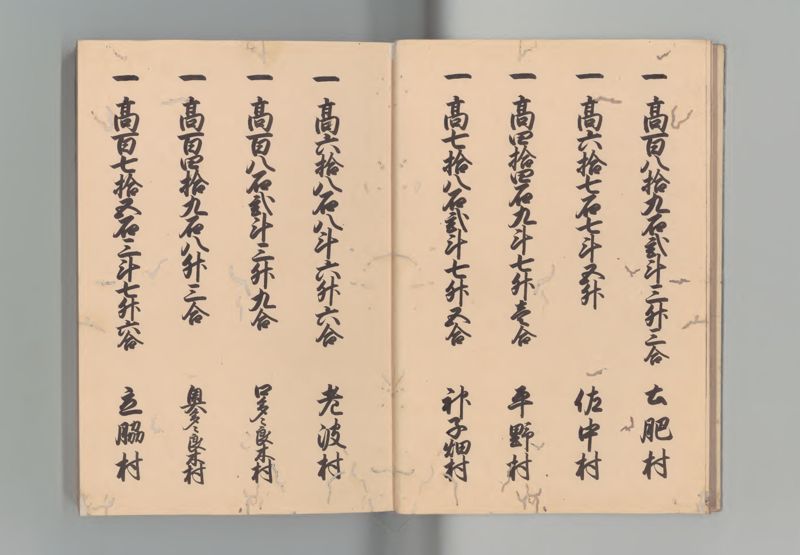 一 高百八拾九石弐斗三升三合 土肥村
一 高六拾七石七斗五升 佐中村
一 高四拾四石九斗七升壱合 平野村
一 高七拾八石弐斗七升五合 神子畑村
一 高六拾八石八斗六升六合 老波村
一 高百八石弐斗三升九合 口多々良木村
一 高百四拾九石八升三合 奥多々良木村
一 高百七拾五石三斗七升六合 立脇村